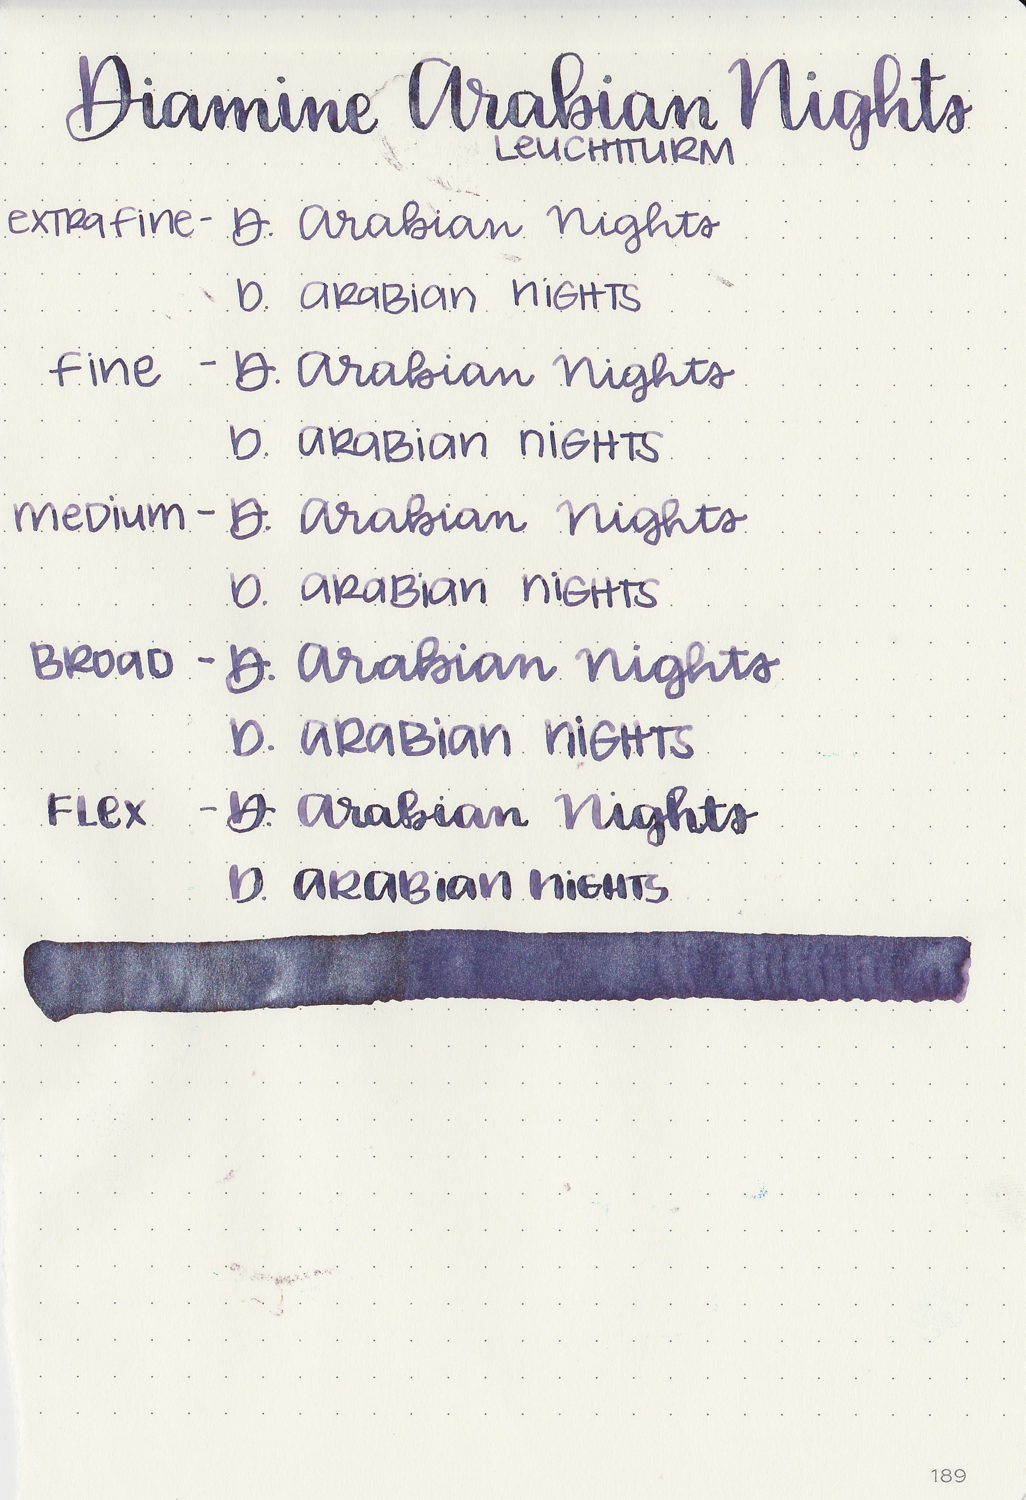 Diamine Arabian Nights
LEUCHTTURM
extra fine - D. Arabian Nights
D. Arabian Nights
fine - D. Arabian Nights
D. Arabian Nights
medium - D. Arabian Nights
D. Arabian Nights
Broad - D. Arabian Nights
D. Arabian Nights
Flex - D. Arabian Nights
D. Arabian Nights
189